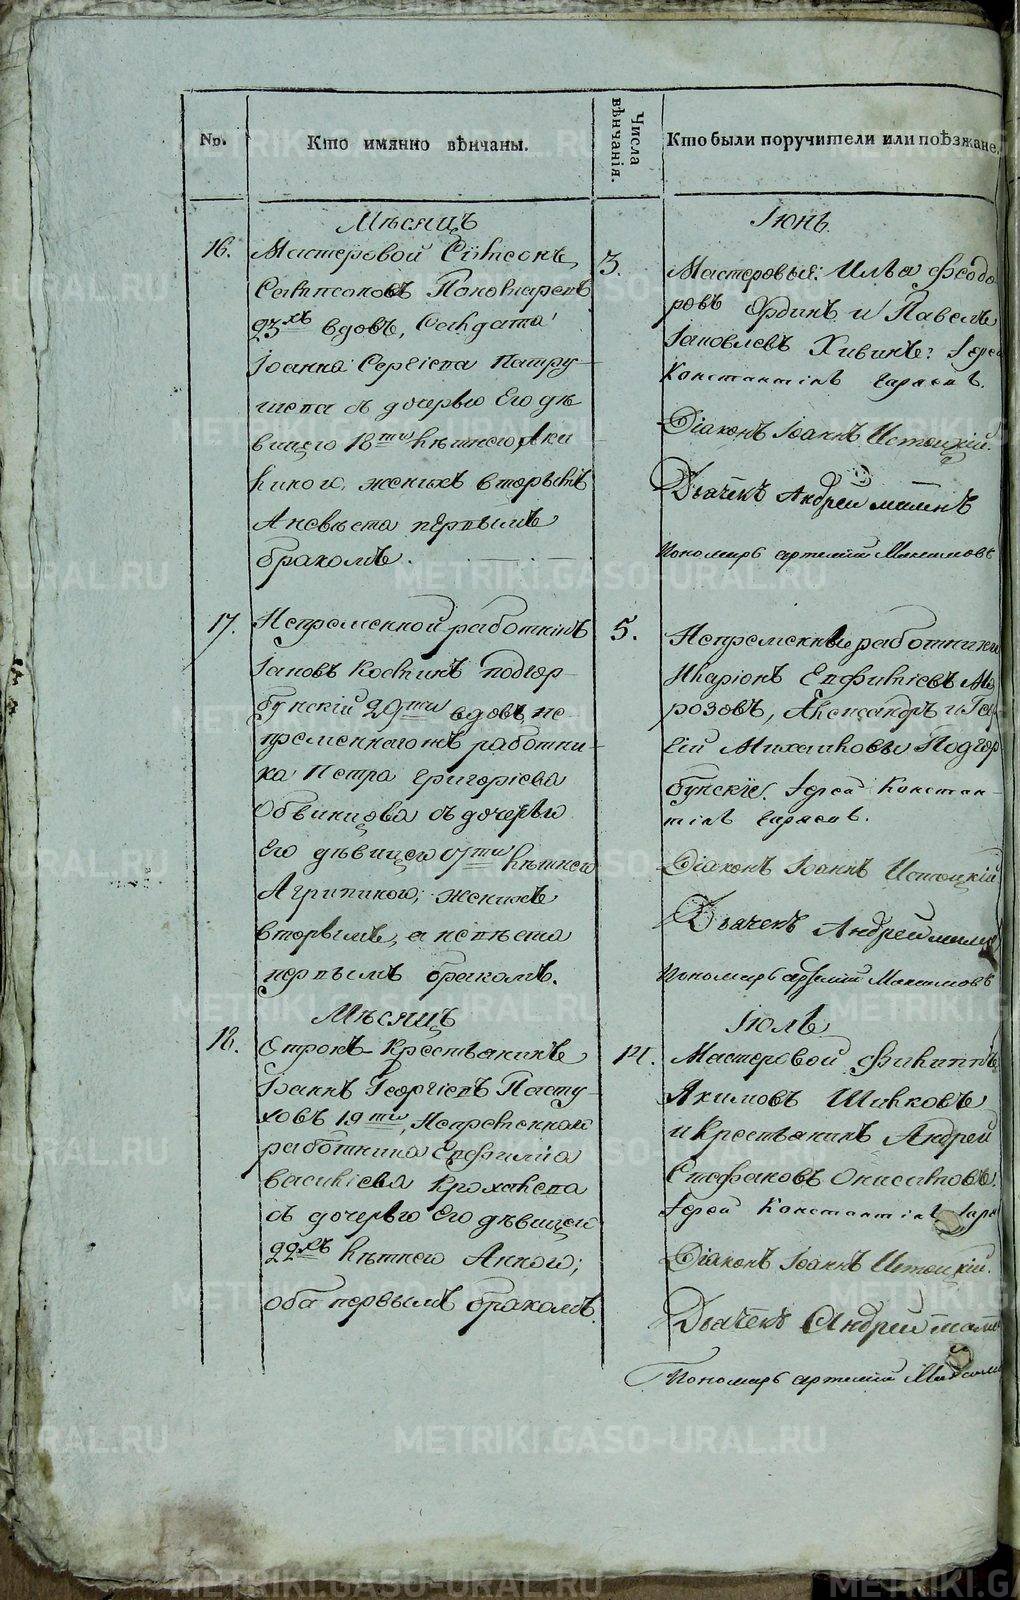 №.
Кто имянно вѣнчаны.
Числа вѣнчанія.
Кто были поручители или поѣзжане.
Мѣсяцъ
Іюнь.
16.
Мастеровой Сѵмеонъ
Самсоновъ Пономаревъ
23хъ вдовъ, Солдата
Іоанна Сергіева Патру-
шева съ дочерью Его дѣ
вицею 18ти лѣтнею Аку
линою, женихъ вторымъ
А невѣста первымъ
бракомъ.
3.
Мастеровыя: Илья Феодо
ровъ Ордин и Павелъ
Іаковлевъ Хивинъ: Іерей
Константинъ
Діаконъ Іоаннъ Истоцкій.
Дьячекъ Андрей
Пономарь Артемій Максимовъ
17.
Непремѣнной работникъ
Іаковъ Костинъ Подгор-
бунскій 29ти вдовъ, не
премѣннагожъ работни-
ка Петра Григоріева
Обвинцова съ дочерью
Его дѣвицею 17ти лѣтнею
Агрипиною; женихъ
вторымъ, а невѣста
первымъ бракомъ.
5.
Непремѣнные работники
Иларіонъ Евфиміевъ Мо
розовъ, Александръ и
Михаиловы Подгор
бунскіе. Іерей Констан-
тинъ
Діаконъ Іоаннъ Истоцкій
Дьячекъ Андрей
Пономарь Артемій Максимовъ
Мѣсяцъ
Іюль
18.
Отрокъ Крестьянинъ
Іоаннъ Георгіевъ Пасту-
ховъ 19ти, Непремѣннаго
работника Евфимія
Василіева Крохалева
съ дочерью Его дѣвицею
22хъ лѣтнею Анною;
оба первымъ бракомъ.
14.
Мастеровой Филиппъ
Акимовъ Шилковъ
и Крестьянинъ Андрей
Стефановъ
Іерей Константинъ
Діаконъ Іоаннъ Истоцкій.
Дьячекъ Андрей
Пономарь Артемій
METRIKI.GASO-URAL.RU